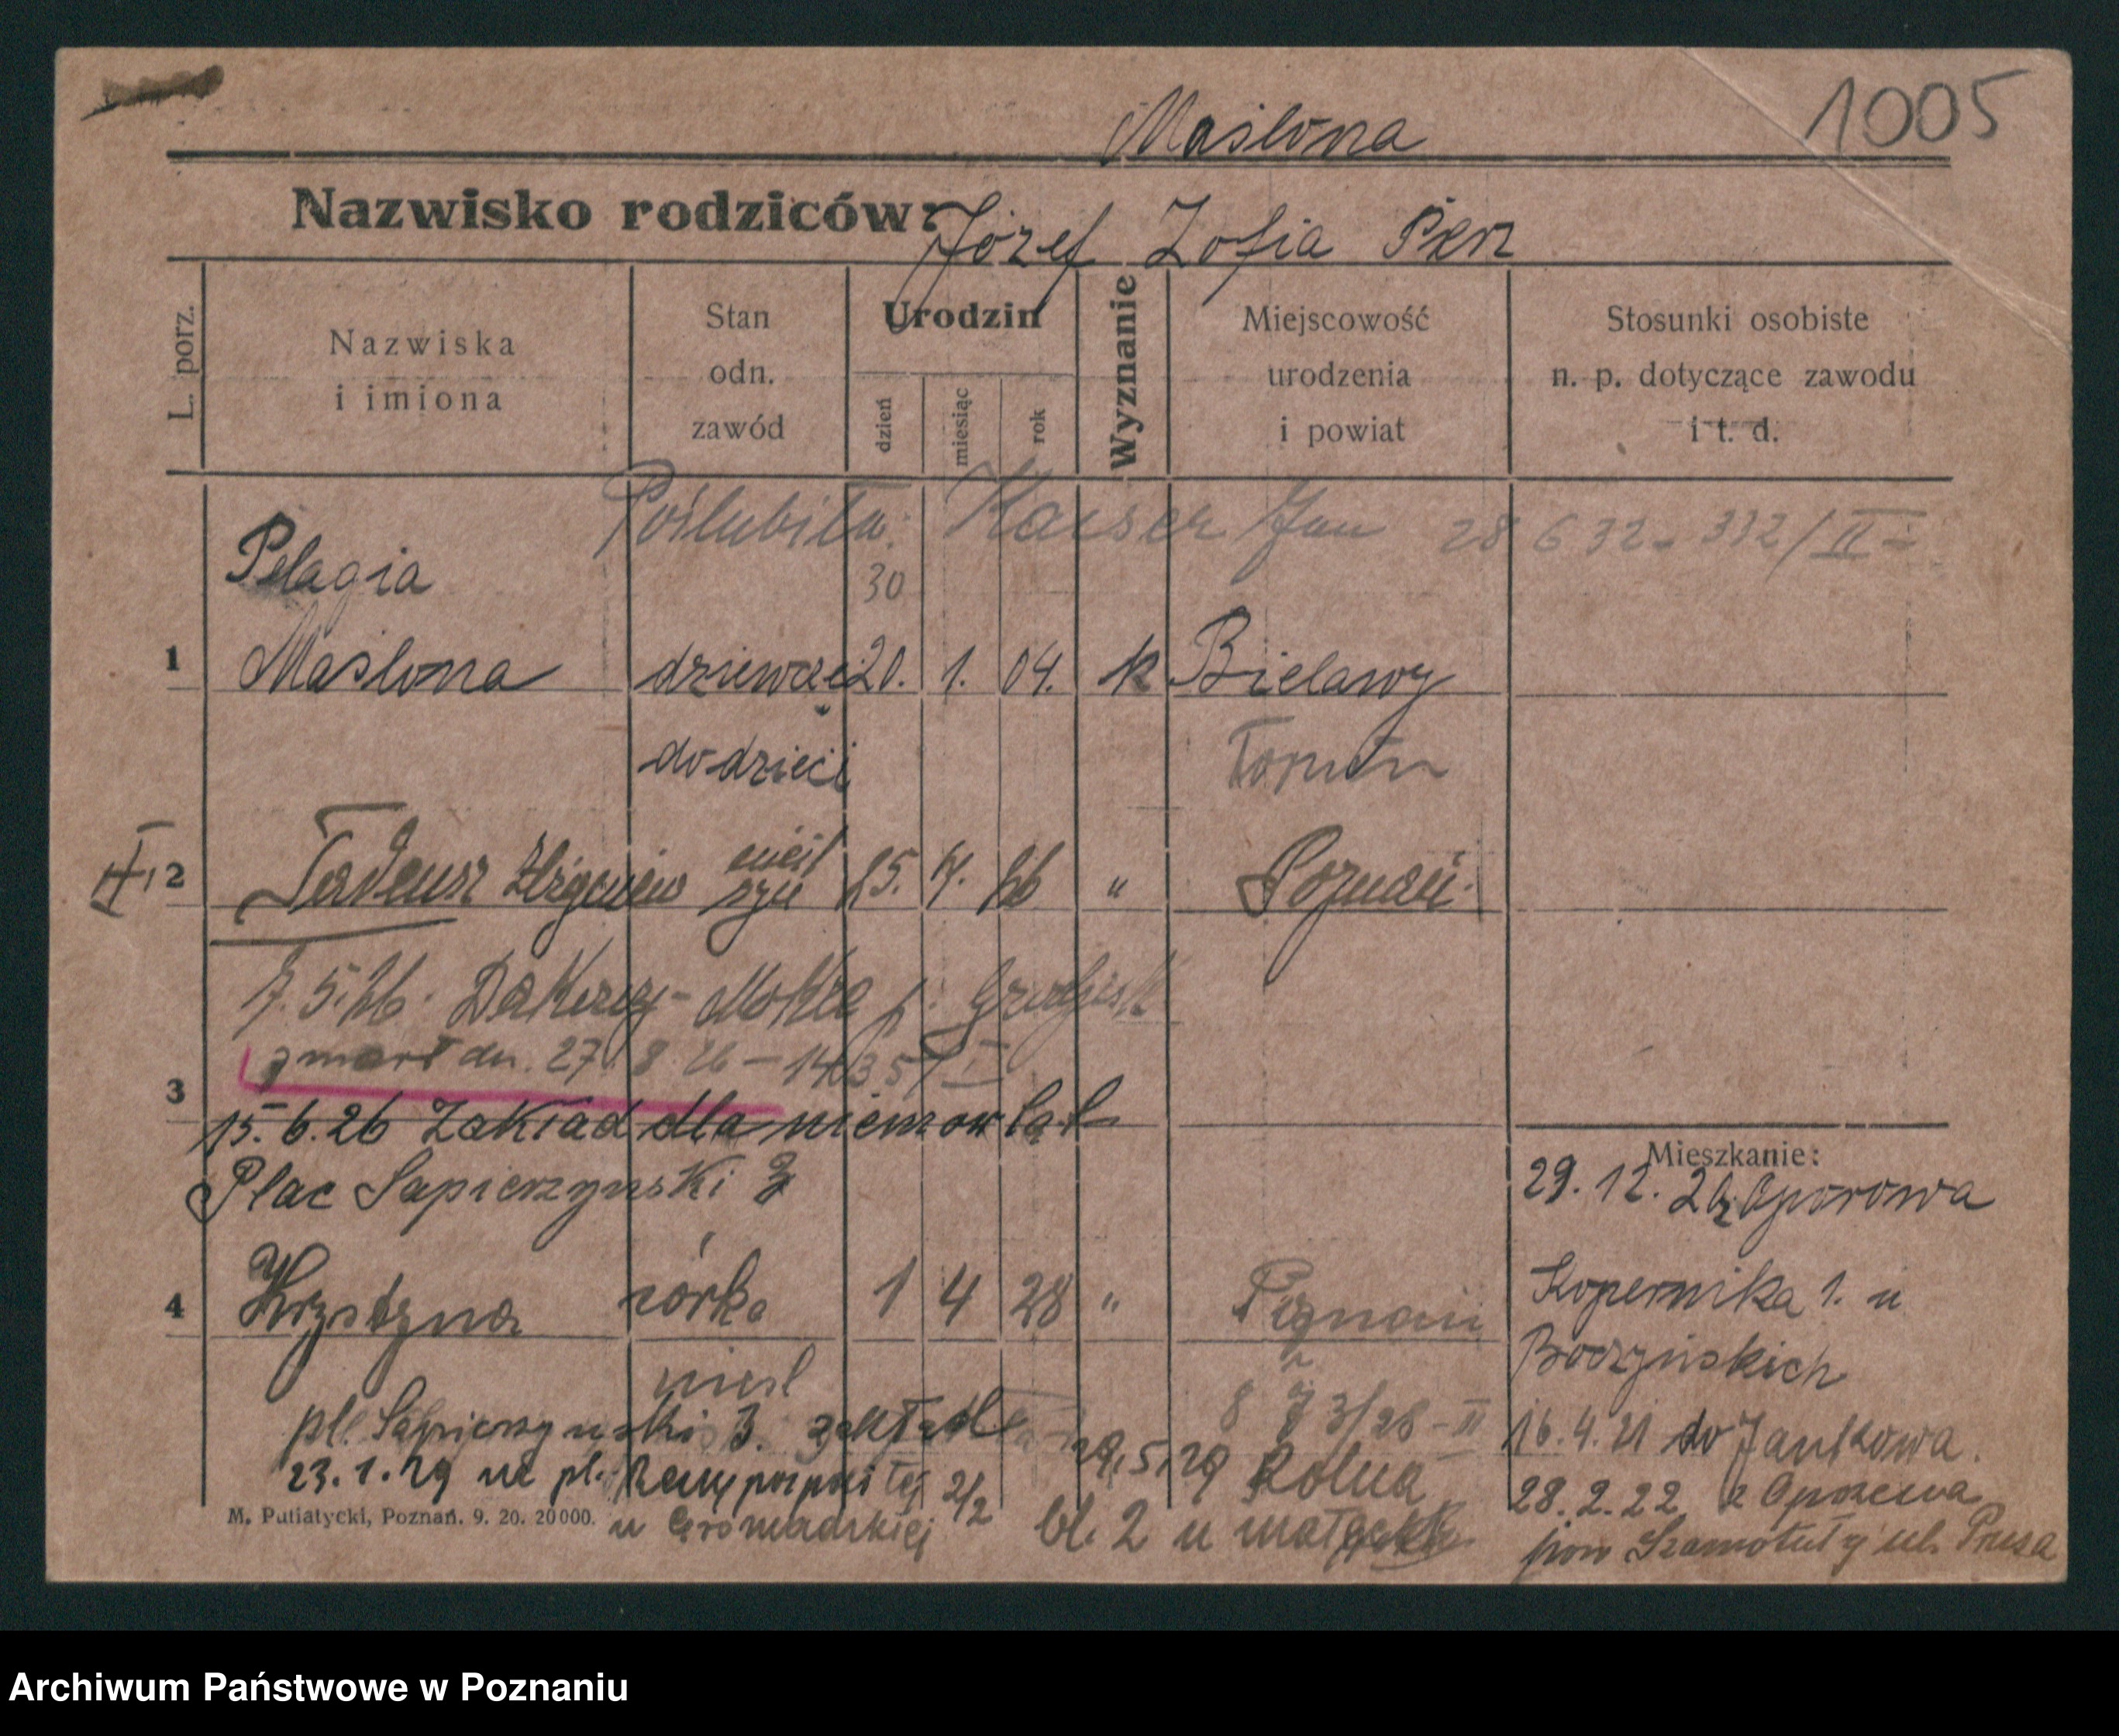 1005
Maślona
Nazwisko rodziców: Józef Zofia
L. porz.
Nazwiska i imiona
Stan odn. zawód
Urodzin
dzień
miesiąc
rok
Wyznanie
Miejscowość urodzenia i powiat
Stosunki osobiste n. p. dotyczące zawodu i t. d.
Poślubiła: Kaiser Jan 28 6 32 - 332/II -
Pelagia
30
1 Maślona dziewczę 20. 1. 04. k Bielawy
do dzieci Toruń
2 Tadeusz Zbigniew nieśl syn 25. 4. 26 " Poznań
7. 5. 26. Dakowy-Mokre p. Grodzisk
zmarł dn. 27 8 26 -
3
15. 6. 26 Zakład dla niemowląt
Plac Sapierzynski 3
Mieszkanie:
29. 12. 20 z Oporowa
4 Krystyna córka 1 4 28 " Poznań
Kopernika 1. u
Brodzyńskich
nieśl
pl. Sapierzynski 3. zakład
16. 4. 21 do Jankowa.
23. 1. 29 na pl. 2/2 29. 5. 29 Rolna
28. 2. 22 z
M. Putiatycki, Poznań. 9. 20. 20000.
u Gromadzkiej bl. 2 u
pow Szamotuły ul. Prusa
Archiwum Państwowe w Poznaniu